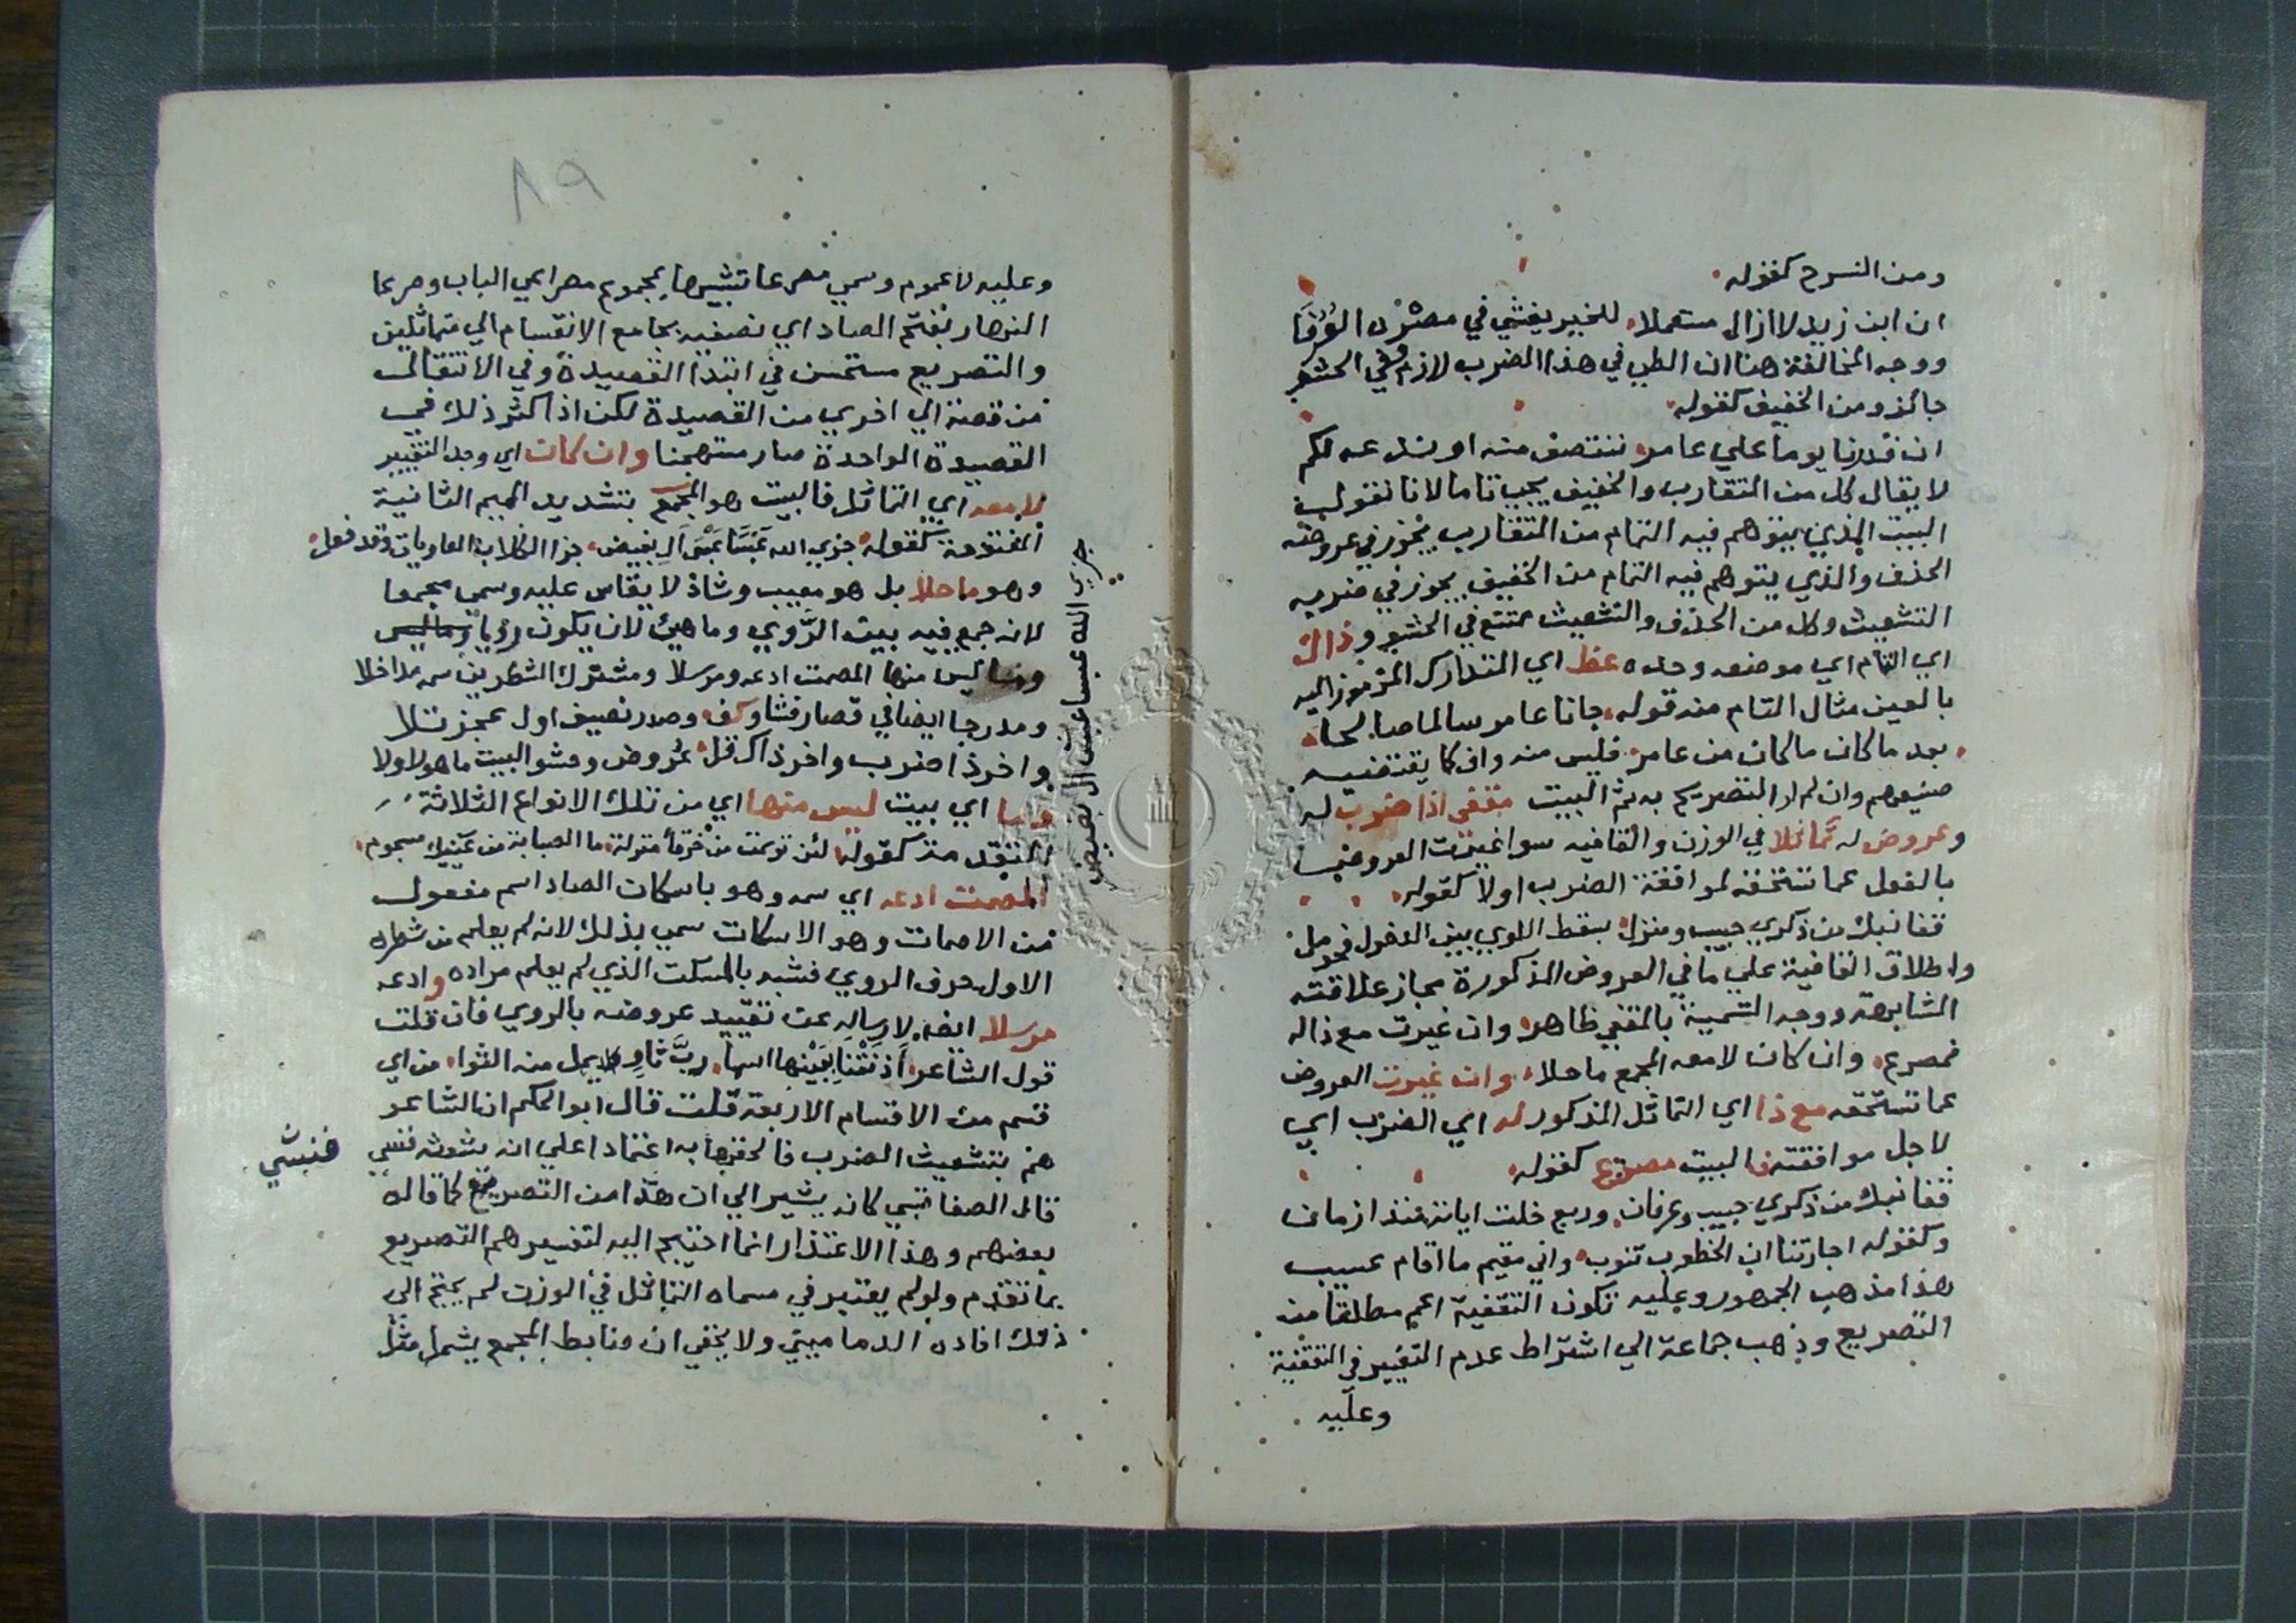 ومن المنسرح كقوله
ان ابن زيد لا زال مستعملا للخير يفشي في مصره العُرُفَا
ووجه المخالفة هنا ان الطي في هذا الضرب لازم وفي الحشو
جائز ومن الخفيف كقوله
ان قدرنا يوما علي عامر ننتصف منه او ندعه لكم
لا يقال كل من المتقارب والخفيف يجيب تاما لانا نقول
البيت الذي يتوهم فيه التمام من المتقارب يجوز في عروضه
الحذف والذي يتوهم فيه التمام من الخفيف يجوز في ضربه
التشعيث وكل من الحذف والتشعيث ممتنع في الحشو وذاك
اي التام اي موضعه وحده عظ اي المتدارك المرموز اليه
بالعين مثال التام منه قوله جانا عامر سالما صالحا
بعد ما كان ما كان من عامر فليس منه وان كا يقتضيه
صنيعهم وان لم ار التصريح به ثم البيت مقفى اذا ضرب له
وعروض له تماثلا في الوزن والقافيه سوا غيرت العروض
بالفعل عما تستحقه لموافقة الضرب اولا كقوله
قفا نبك من ذكري حبيب ومنزل بسقط اللوي بين الدخول فحومل
واطلاق القافية علي ما في العروض المذكورة مجاز علاقته
المشابهة ووجه التسمية بالمقفي ظاهر وان غيرت مع ذا له
فمصرع وان كان لا معه المجمع ما حلا وان غيرت العروض
عما تستحقه مع ذا اي التماثل المذكور له اي الضرب اي
لاجل موافقته فالبيت مصرع كقوله
قفا نبك من ذكري حبيب وعرفان وربع خلت اياته منذ ازمان
وكقوله اجارتنا ان الخطوب تنوب واني مقيم ما اقام عسيب
هذا مذهب الجمهور وعليه تكون التقفية اعم مطلقا من
التصريع وذهب جماعة الي اشتراط عدم التغيير في التقفية
وعليه
٨٩
وعليه لا عموم وسمي مصرعا تشبيها بمجموع مصراعي الباب ومصرعا
النهار بفتح الصاد اي نصفيه بجامع الانقسام الي متماثلين
والتصريع مستحسن في ابتدا القصيدة وفي الانتقال
من قصة الي اخري من القصيدة لكن اذا كثر ذلك في
القصيدة الواحدة صار مستهجنا وان كان اي وجد التغيير
لا معه اي التماثل فالبيت هو المجمع بتشديد الميم الثانية
المفتوحة كقوله جزي الله عَبْسًا عَبْسَ آلِ بغيض جزا الكلاب العاويات وقد فعل
وهو ما حلا بل هو معيب وشاذ لا يقاس عليه وسمي مجمعا
لانه جمع فيه بيت الرَّوي وما هيئ لان يكون رويا وما ليس
وما ليس منها المصمت ادعه ومرسلا ومشترك الشطرين سمه مداخلا
ومدرجا ايضا في قصار فشا وكف وصدر نصيف اول عجز تلا
واخر ذا ضرب واخر ذاك قل عَروض وحشو البيت ما هو لا ولا
وما اي بيت ليس منها اي من تلك الانواع الثلاثة
المتقدمة كقوله ائن توهمت من خرقأ منزلة ما الصبابة من عينيك مسجوم
المصمت ادعه اي سمه وهو باسكان الصاد اسم مفعول
من الاصمات وهو الاسكات سمي بذلك لانه لم يعلم من شطره
الاول حرف الروي فشبه بالمسكت الذي لم يعلم مراده وادعه
مرسلا ايضا لارساله عن تقييد عروضه بالروي فان قلت
قول الشاعر اَذنَتْنَا بِبَيْنِها اسما ربَّ ثاوٍ يمل منه الثوا من اي
قسم من الاقسام الاربعة قلت قال ابو الحكم ان الشاعر
هم بتشعيث الضرب فالحقها به اعتمادا علي انه يشعثه فنسي
فنسي
قال الصفاقسي كانه يشير الي ان هذا من التصريع كما قاله
بعضهم وهذا الاعتذار انما احتيج اليه لتفسيرهم التصريع
بما تقدم ولو لم يعتبر في مسماه التماثل في الوزن لم يحتج الى
ذلك افاده الدماميني ولا يخفي ان ضابط المجمع يشمل مثل
جزي الله عبسا عبس ال بغيض